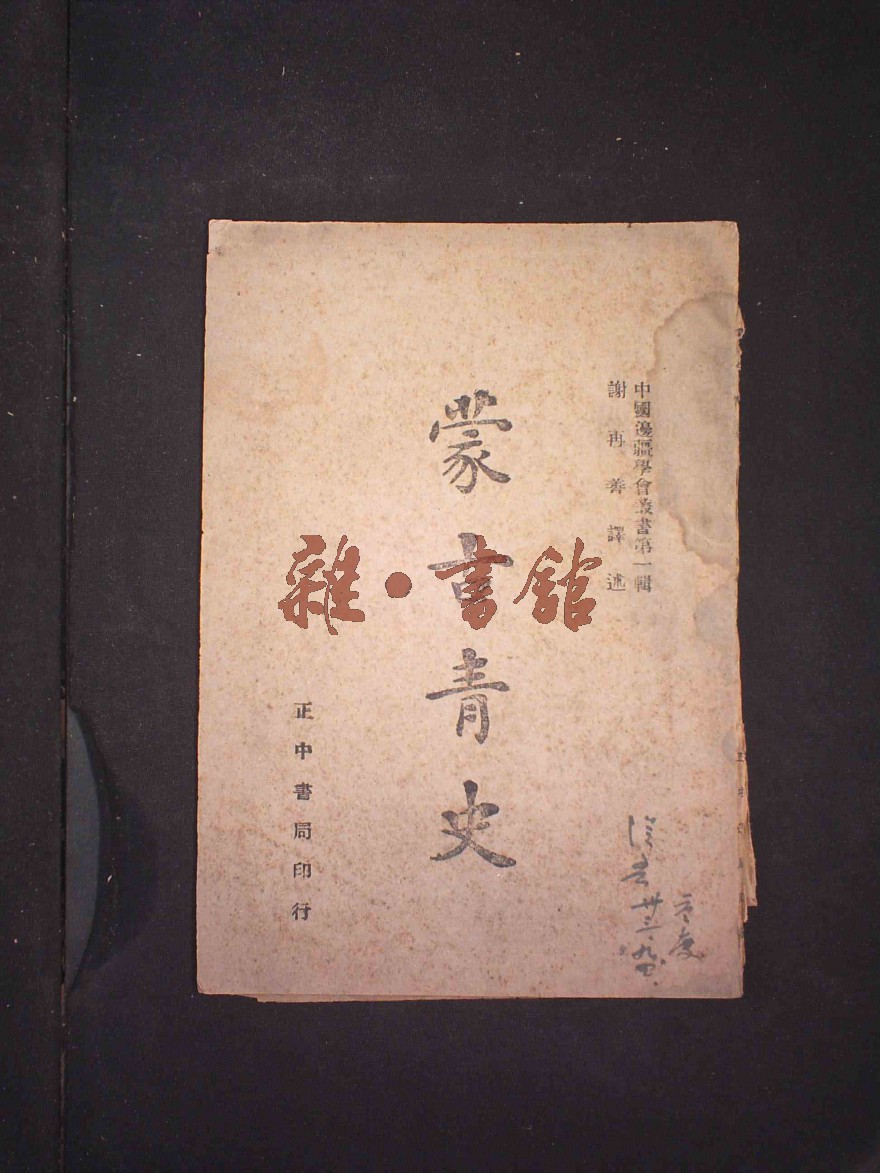 中國邊疆學會叢書第一輯
謝再善譯述
蒙古青史
正中書局印行
雜·書館
卅三、九、四